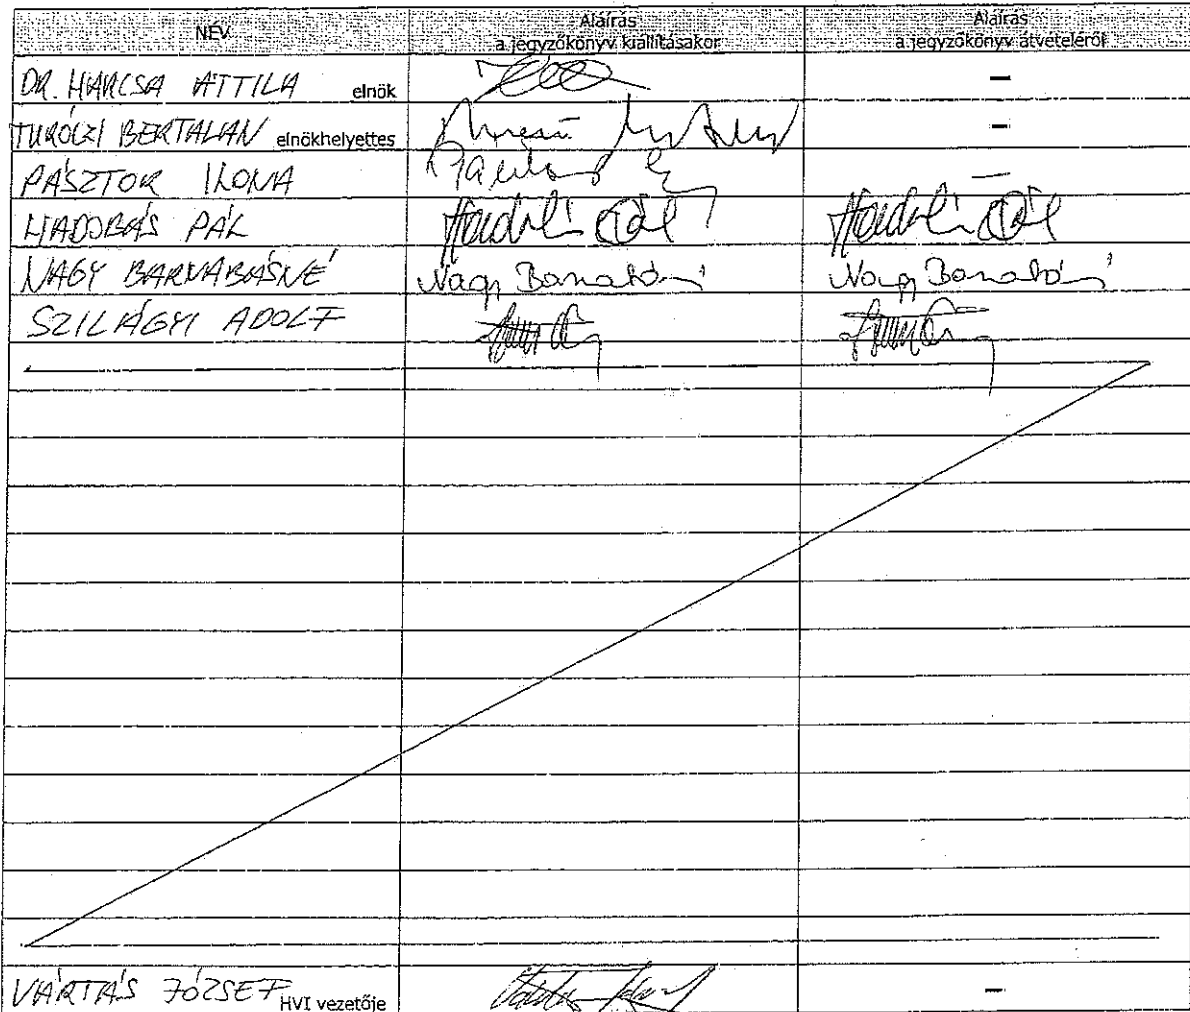 NÉV Aláírás a jegyzőkönyv kiállításakor Aláírás a jegyzőkönyv átvételéről
DR. HARCSA ATTILA elnök –
TURÓCZI BERTALAN elnökhelyettes –
PÁSZTOR ILONA –
HADOBÁS PÁL
NAGY BARNABÁSNÉ Nagy Barnabásné Nagy Barnabásné
SZILÁGYI ADOLF
VÁRTÁS JÓZSEF HVI vezetője –